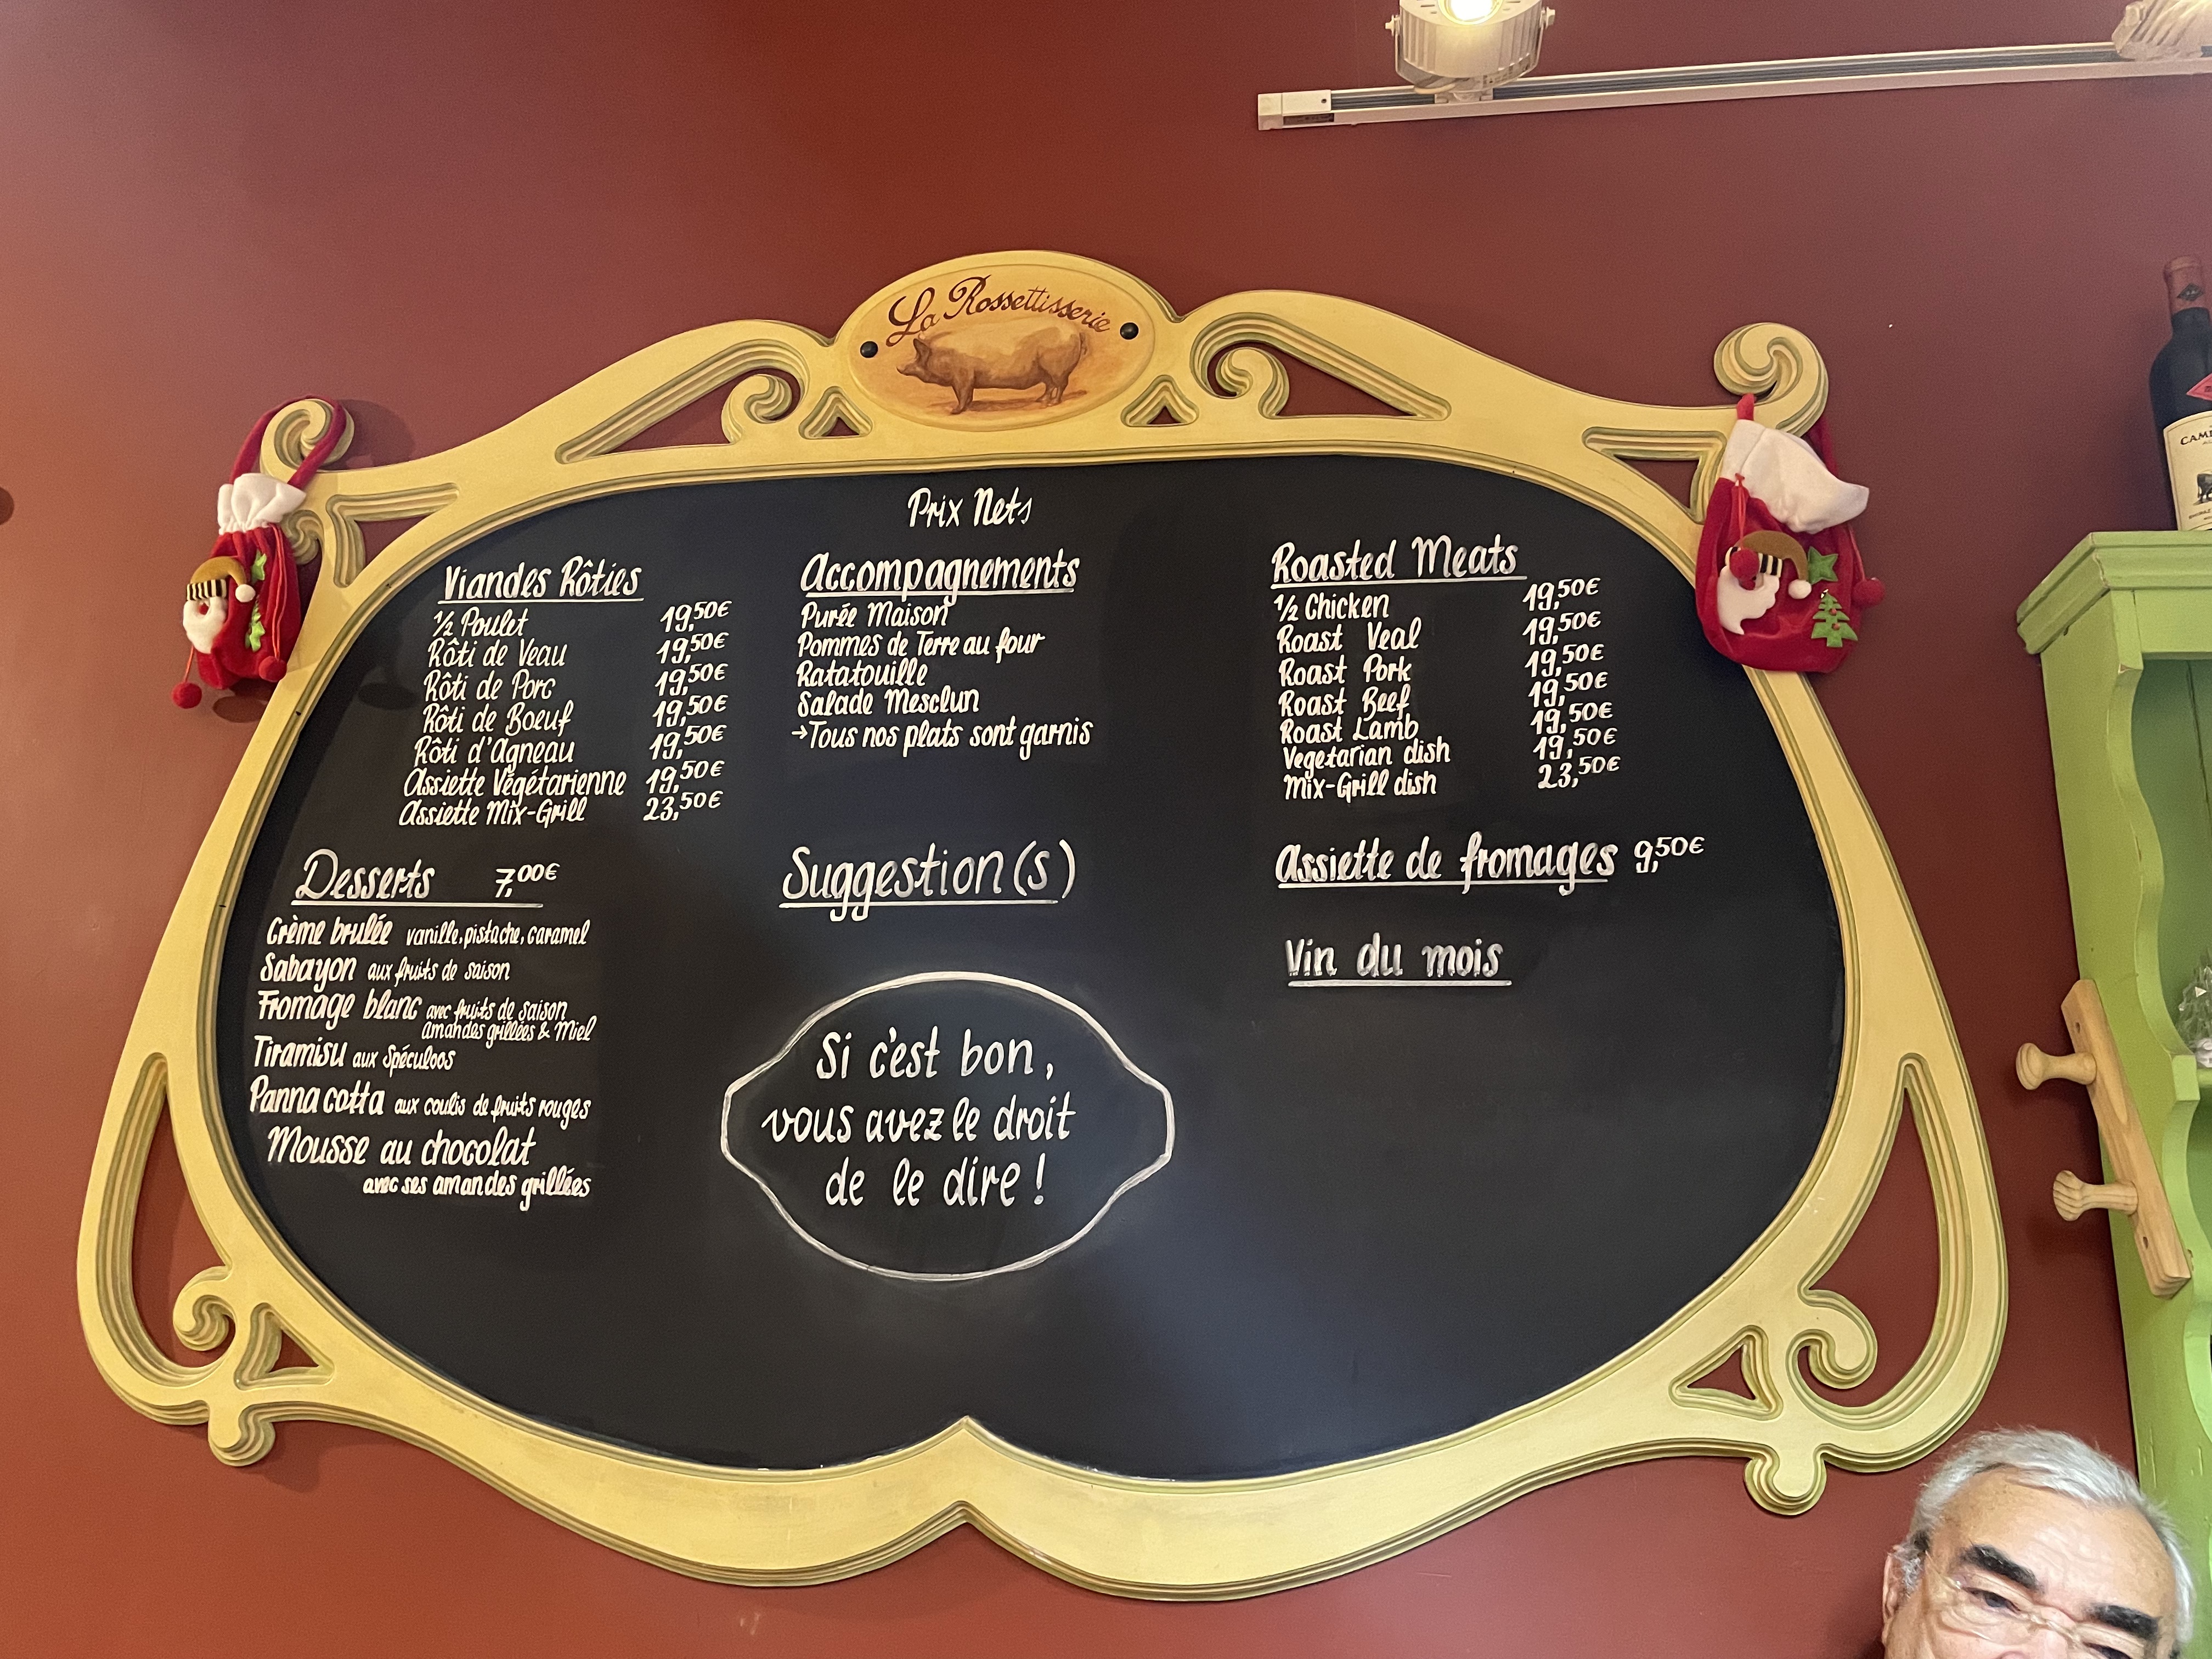 La Rossettisserie
Prix Nets
Viandes Rôties
½ Poulet 19,50€
Rôti de Veau 19,50€
Rôti de Porc 19,50€
Rôti de Boeuf 19,50€
Rôti d'Agneau 19,50€
Assiette Végétarienne 19,50€
Assiette Mix-Grill 23,50€
Accompagnements
Purée Maison
Pommes de Terre au four
Ratatouille
Salade Mesclun
→Tous nos plats sont garnis
Roasted Meats
½ Chicken 19,50€
Roast Veal 19,50€
Roast Pork 19,50€
Roast Beef 19,50€
Roast Lamb 19,50€
Vegetarian dish 19,50€
Mix-Grill dish 23,50€
Desserts 7,00€
Crème brulée vanille, pistache, caramel
Sabayon aux fruits de saison
Fromage blanc avec fruits de saison
amandes grillées & Miel
Tiramisu aux Spéculoos
Panna cotta aux coulis de fruits rouges
Mousse au chocolat
avec ses amandes grillées
Suggestion(s)
Si c'est bon,
vous avez le droit
de le dire !
Assiette de fromages 9,50€
Vin du mois